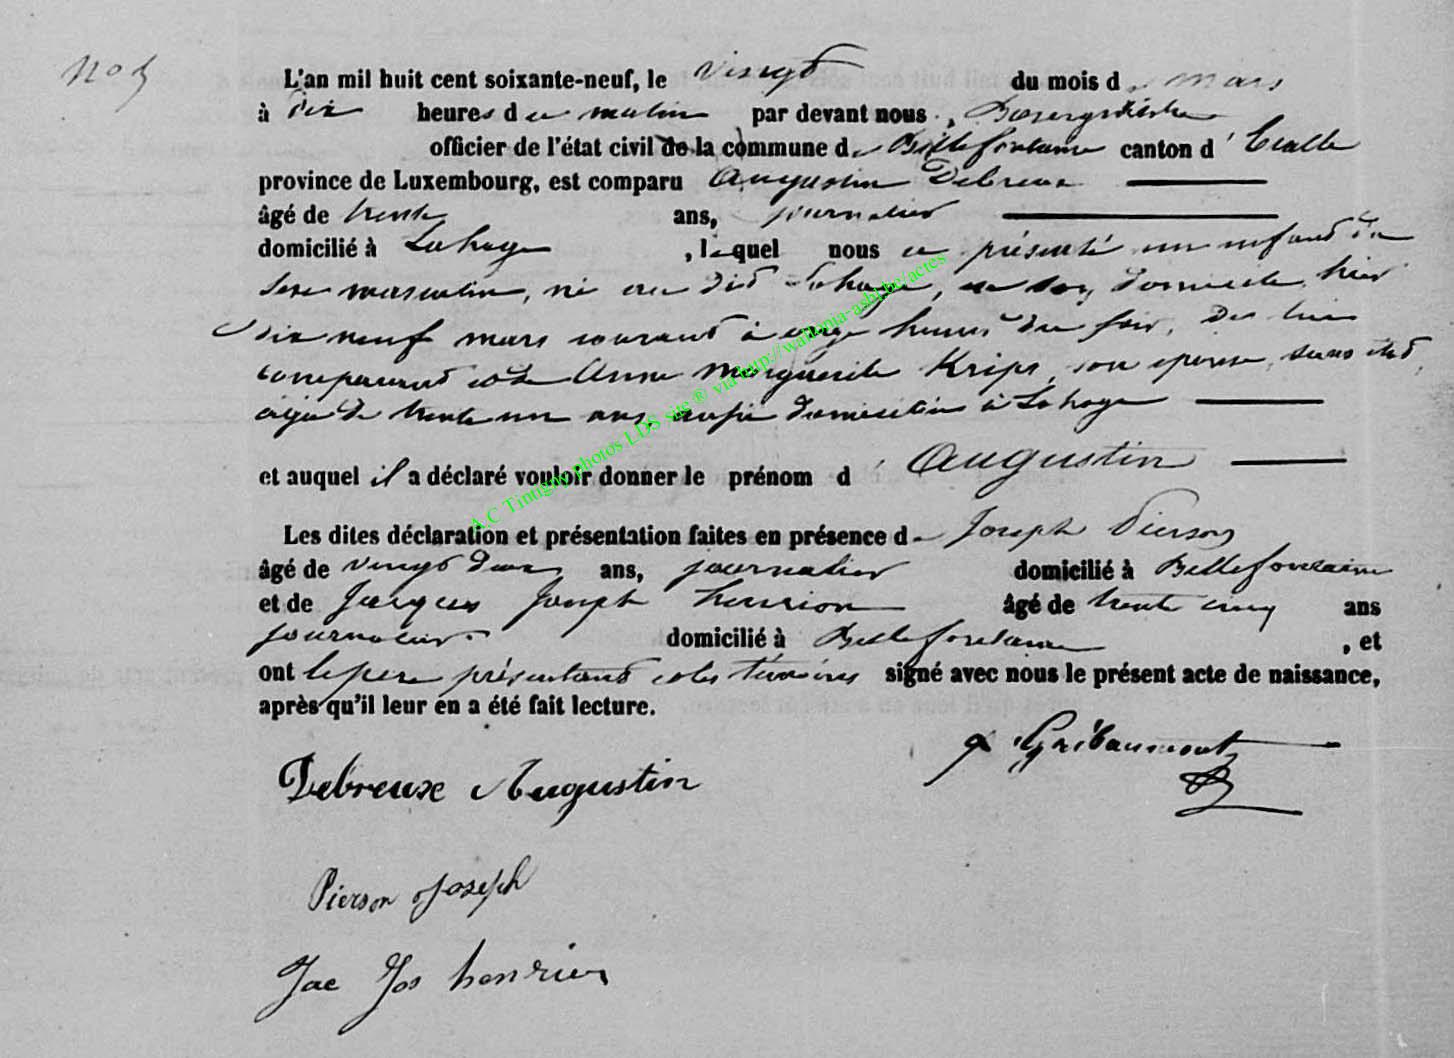 No 5
L'an mil huit cent soixante-neuf, le vingt du mois de mars
à dix heures du matin par devant nous, Bourgmestre
officier de l'état civil de la commune de Bellefontaine canton d'Etalle
province de Luxembourg, est comparu Augustin Debreux
âgé de trente ans, journalier
domicilié à Lahage, lequel nous a présenté un enfant du
sexe masculin, né au dit Lahage, en son domicile, hier
dix neuf mars courant à onze heures du soir, de lui
comparant et de Anne Marguerite Krips, son épouse, sans état,
âgée de trente un ans, aussi domiciliée à Lahage
et auquel il a déclaré vouloir donner le prénom d'Augustin
Les dites déclaration et présentation faites en présence de Joseph Pierson
âgé de vingt deux ans, journalier domicilié à Bellefontaine
et de Jacques Joseph henrion âgé de trente cinq ans
journalier domicilié à Bellefontaine, et
ont le père présentant et les témoins signé avec nous le présent acte de naissance,
après qu'il leur en a été fait lecture.
Gribaumont
Debreuxe Augustin
Pierson Joseph
Jac Jos henrion
A.C Tintigny photos LDS site ® via http://wallonia-asbl.be/actes